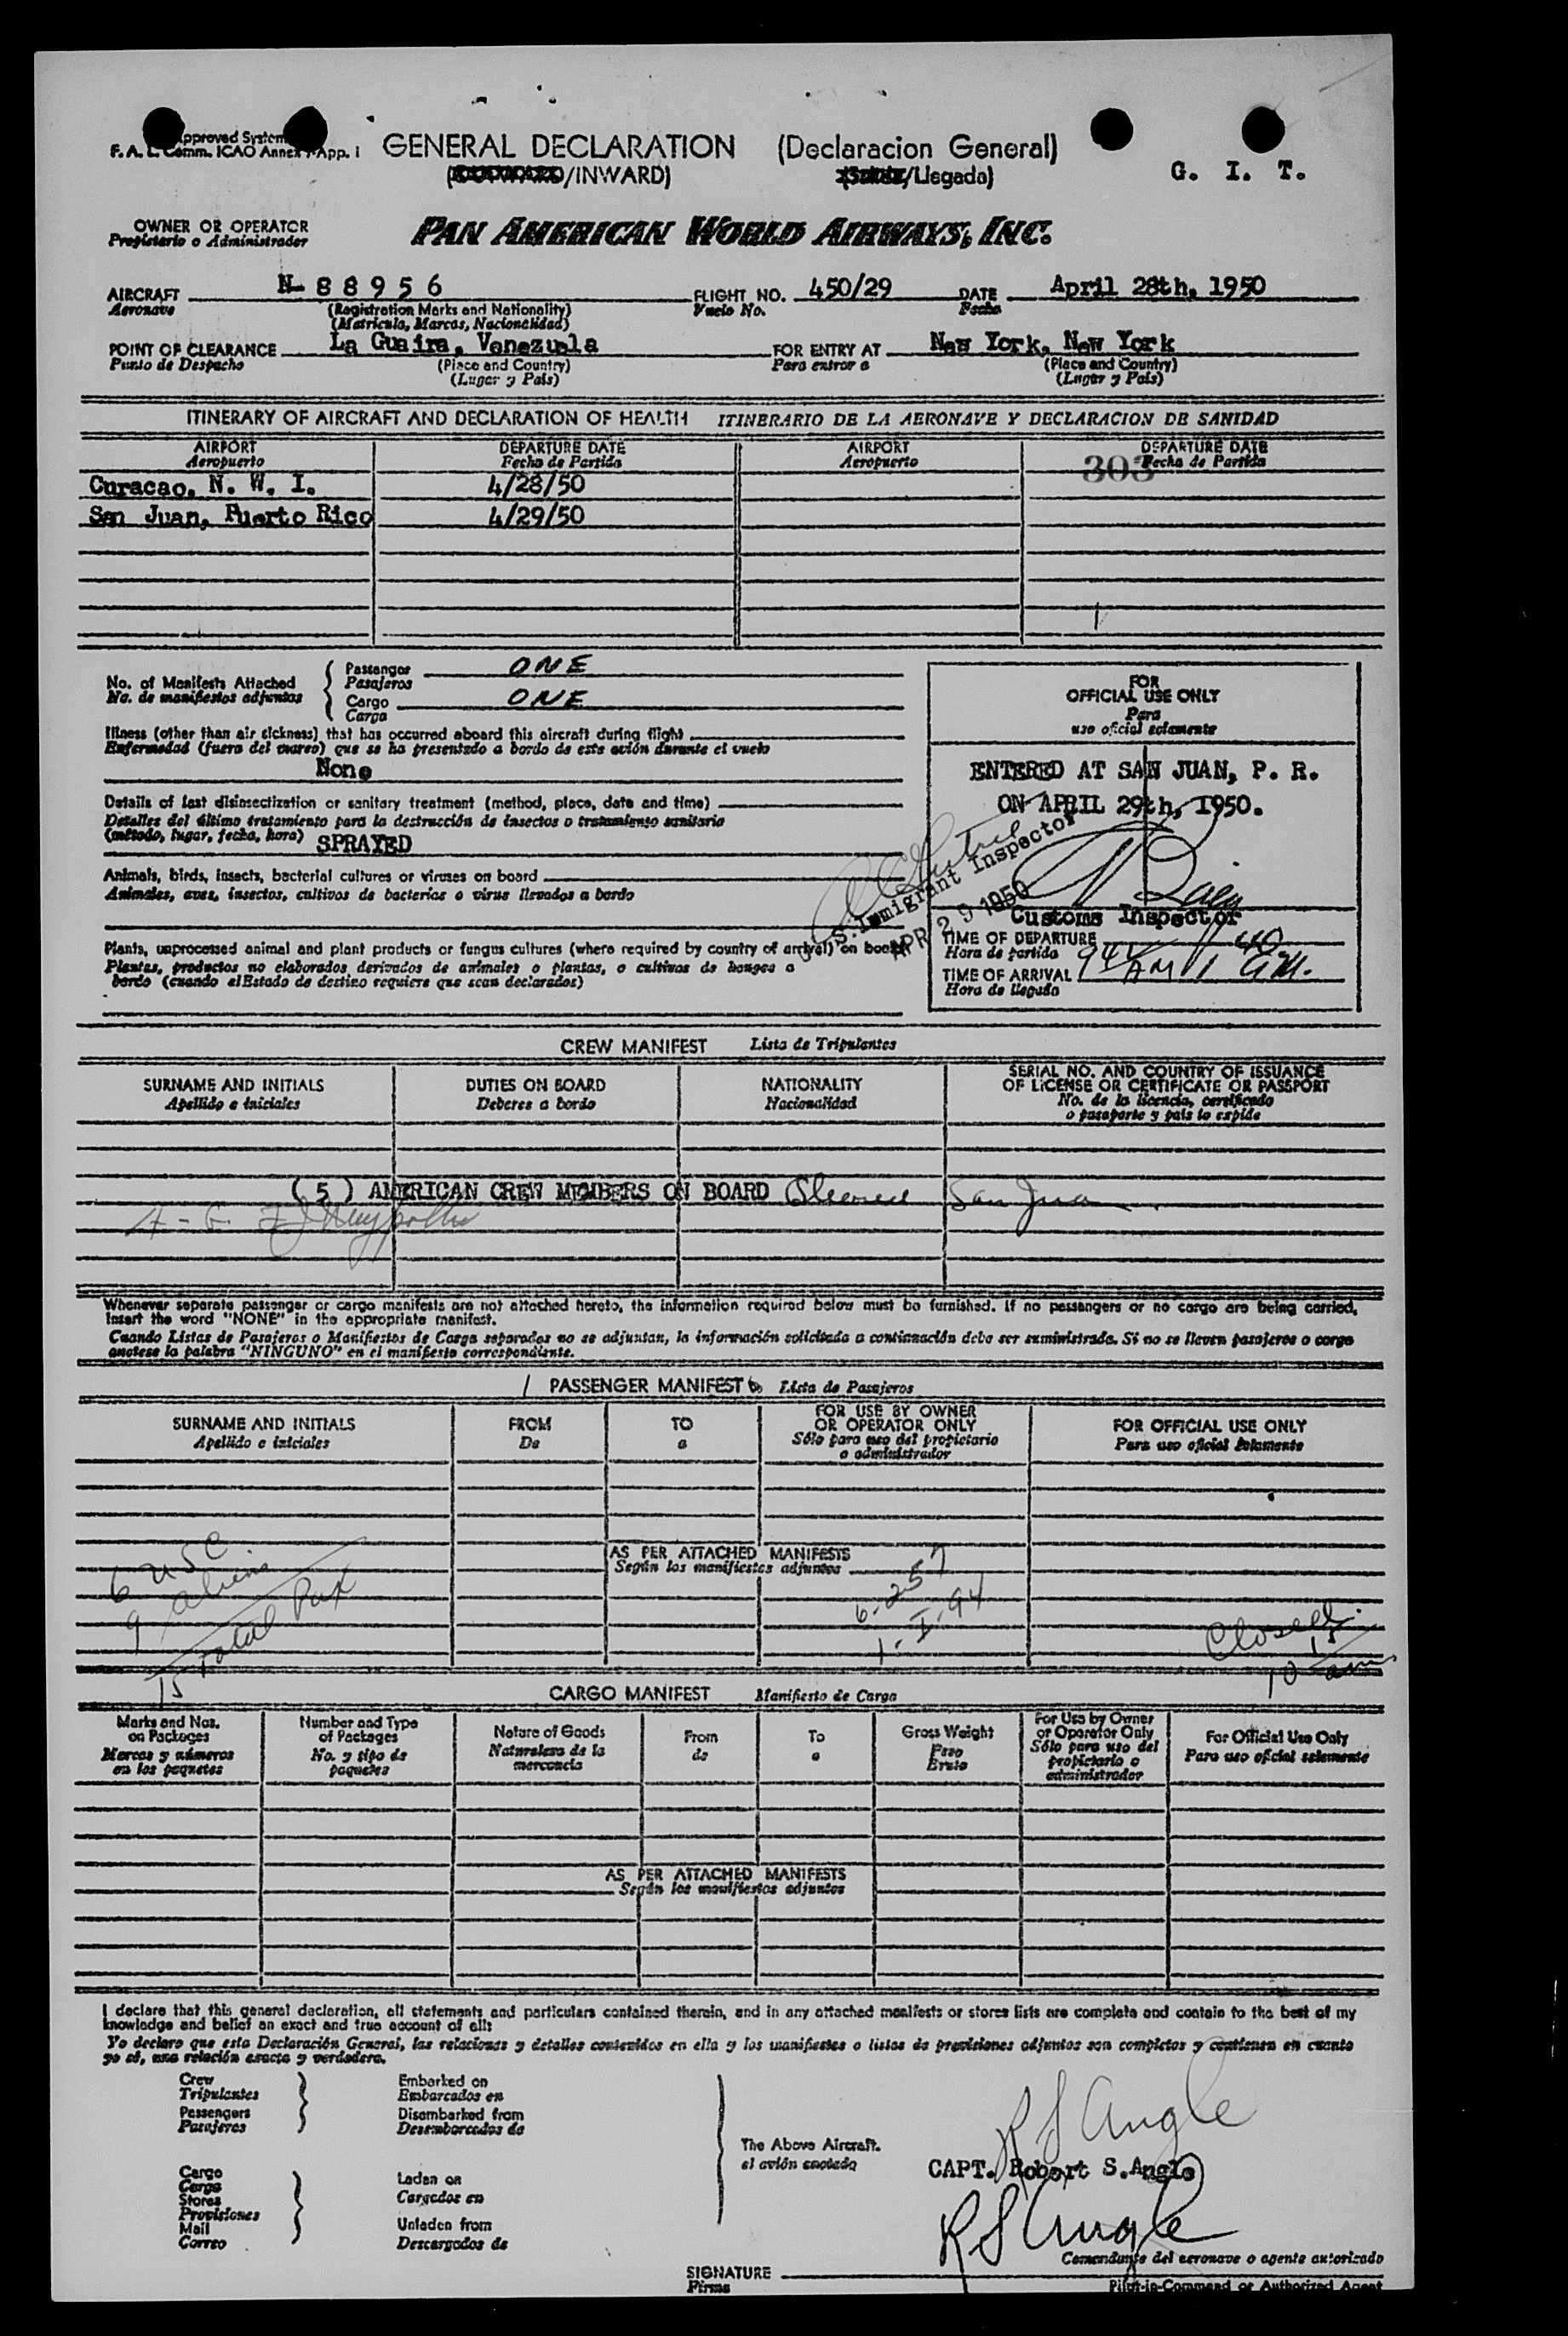 Approved System
F. A. L. Comm. ICAO Annex 9 App. 1
GENERAL DECLARATION (Declaracion General)
/INWARD) /Llegada)
G. I. T.
OWNER OR OPERATOR
Propietario o Administrador
PAN AMERICAN WORLD AIRWAYS, INC.
AIRCRAFT N-88956 FLIGHT NO. 450/29 DATE April 28th, 1950
Aeronave (Registration Marks and Nationality) Vuelo No. Fecha
(Matricula, Marcas, Nacionalidad)
POINT OF CLEARANCE La Guaira, Venezuela FOR ENTRY AT New York, New York
Punto de Despacho (Place and Country) Para entrar a (Place and Country)
(Lugar y País) (Lugar y País)
ITINERARY OF AIRCRAFT AND DECLARATION OF HEALTH ITINERARIO DE LA AERONAVE Y DECLARACION DE SANIDAD
AIRPORT DEPARTURE DATE AIRPORT DEPARTURE DATE
Aeropuerto Fecha de Partida Aeropuerto Fecha de Partida
303
Curacao, N. W. I. 4/28/50
San Juan, Puerto Rico 4/29/50
No. of Manifests Attached
No. de manifiestos adjuntos
Passenger ONE
Pasajeros
Cargo ONE
Carga
Illness (other than air sickness) that has occurred aboard this aircraft during flight
Enfermedad (fuera del mareo) que se ha presentado a bordo de este avión durante el vuelo
None
Details of last disinsectization or sanitary treatment (method, place, date and time)
Detalles del último tratamiento para la destrucción de insectos o tratamiento sanitario
(método, lugar, fecha, hora) SPRAYED
Animals, birds, insects, bacterial cultures or viruses on board
Animales, aves, insectos, cultivos de bacterias o virus llevados a bordo
Plants, unprocessed animal and plant products or fungus cultures (where required by country of arrival) on board
Plantas, productos no elaborados derivados de animales o plantas, o cultivos de hongos a
bordo (cuando el Estado de destino requiere que sean declarados)
FOR
OFFICIAL USE ONLY
Para
uso oficial solamente
ENTERED AT SAN JUAN, P. R.
ON APRIL 29th, 1950.
U. S. Immigrant Inspector
APR 29 1950
Customs Inspector
TIME OF DEPARTURE
Hora de partida
TIME OF ARRIVAL
Hora de llegada
CREW MANIFEST Lista de Tripulantes
SURNAME AND INITIALS DUTIES ON BOARD NATIONALITY SERIAL NO. AND COUNTRY OF ISSUANCE
OF LICENSE OR CERTIFICATE OR PASSPORT
Apellido e iniciales Deberes a bordo Nacionalidad No. de la licencia, certificado
o pasaporte y pais lo expide
( 5 ) AMERICAN CREW MEMBERS ON BOARD Cleared San Juan
Whenever separate passenger or cargo manifests are not attached hereto, the information required below must be furnished. If no passengers or no cargo are being carried,
insert the word "NONE" in the appropriate manifest.
Cuando Listas de Pasajeros o Manifiestos de Carga separados no se adjuntan, la información solicitada a continuación debe ser suministrada. Si no se lleven pasajeros o carga
anotese la palabra "NINGUNO" en el manifiesto correspondiente.
PASSENGER MANIFEST Lista de Pasajeros
SURNAME AND INITIALS FROM TO FOR USE BY OWNER
OR OPERATOR ONLY FOR OFFICIAL USE ONLY
Apellido e iniciales De a Sólo para uso del propietario
o administrador Para uso oficial solamente
AS PER ATTACHED MANIFESTS
Según los manifiestos adjuntos
6 USC
9 aliens
15 total Pax
6-257
1-I-94
Closed
10 15 am
CARGO MANIFEST Manifiesto de Carga
Marks and Nos.
on Packages
Marcas y números
en los paquetes
Number and Type
of Packages
No. y tipo de
paquetes
Nature of Goods
Naturaleza de la
mercancía
From
de
To
a
Gross Weight
Peso
Bruto
For Use by Owner
or Operator Only
Sólo para uso del
propietario o
administrador
For Official Use Only
Para uso oficial solamente
AS PER ATTACHED MANIFESTS
Según los manifiestos adjuntos
I declare that this general declaration, all statements and particulars contained therein, and in any attached manifests or stores lists are complete and contain to the best of my
knowledge and belief an exact and true account of all:
Yo declaro que esta Declaración General, las relaciones y detalles contenidos en ella y los manifiestos o listas de provisiones adjuntos son completos y contienen en cuanto
yo sé, una relación exacta y verdadera.
Crew
Tripulantes
Passengers
Pasajeros
Embarked on
Embarcados en
Disembarked from
Desembarcados de
Cargo
Carga
Stores
Provisiones
Mail
Correo
Laden on
Cargados en
Unladen from
Descargados de
The Above Aircraft.
el avión anotado
R S Angle
CAPT. Robert S. Angle
R S Angle
Comandante del aeronave o agente autorizado
SIGNATURE
Firma
Pilot-in-Command or Authorized Agent